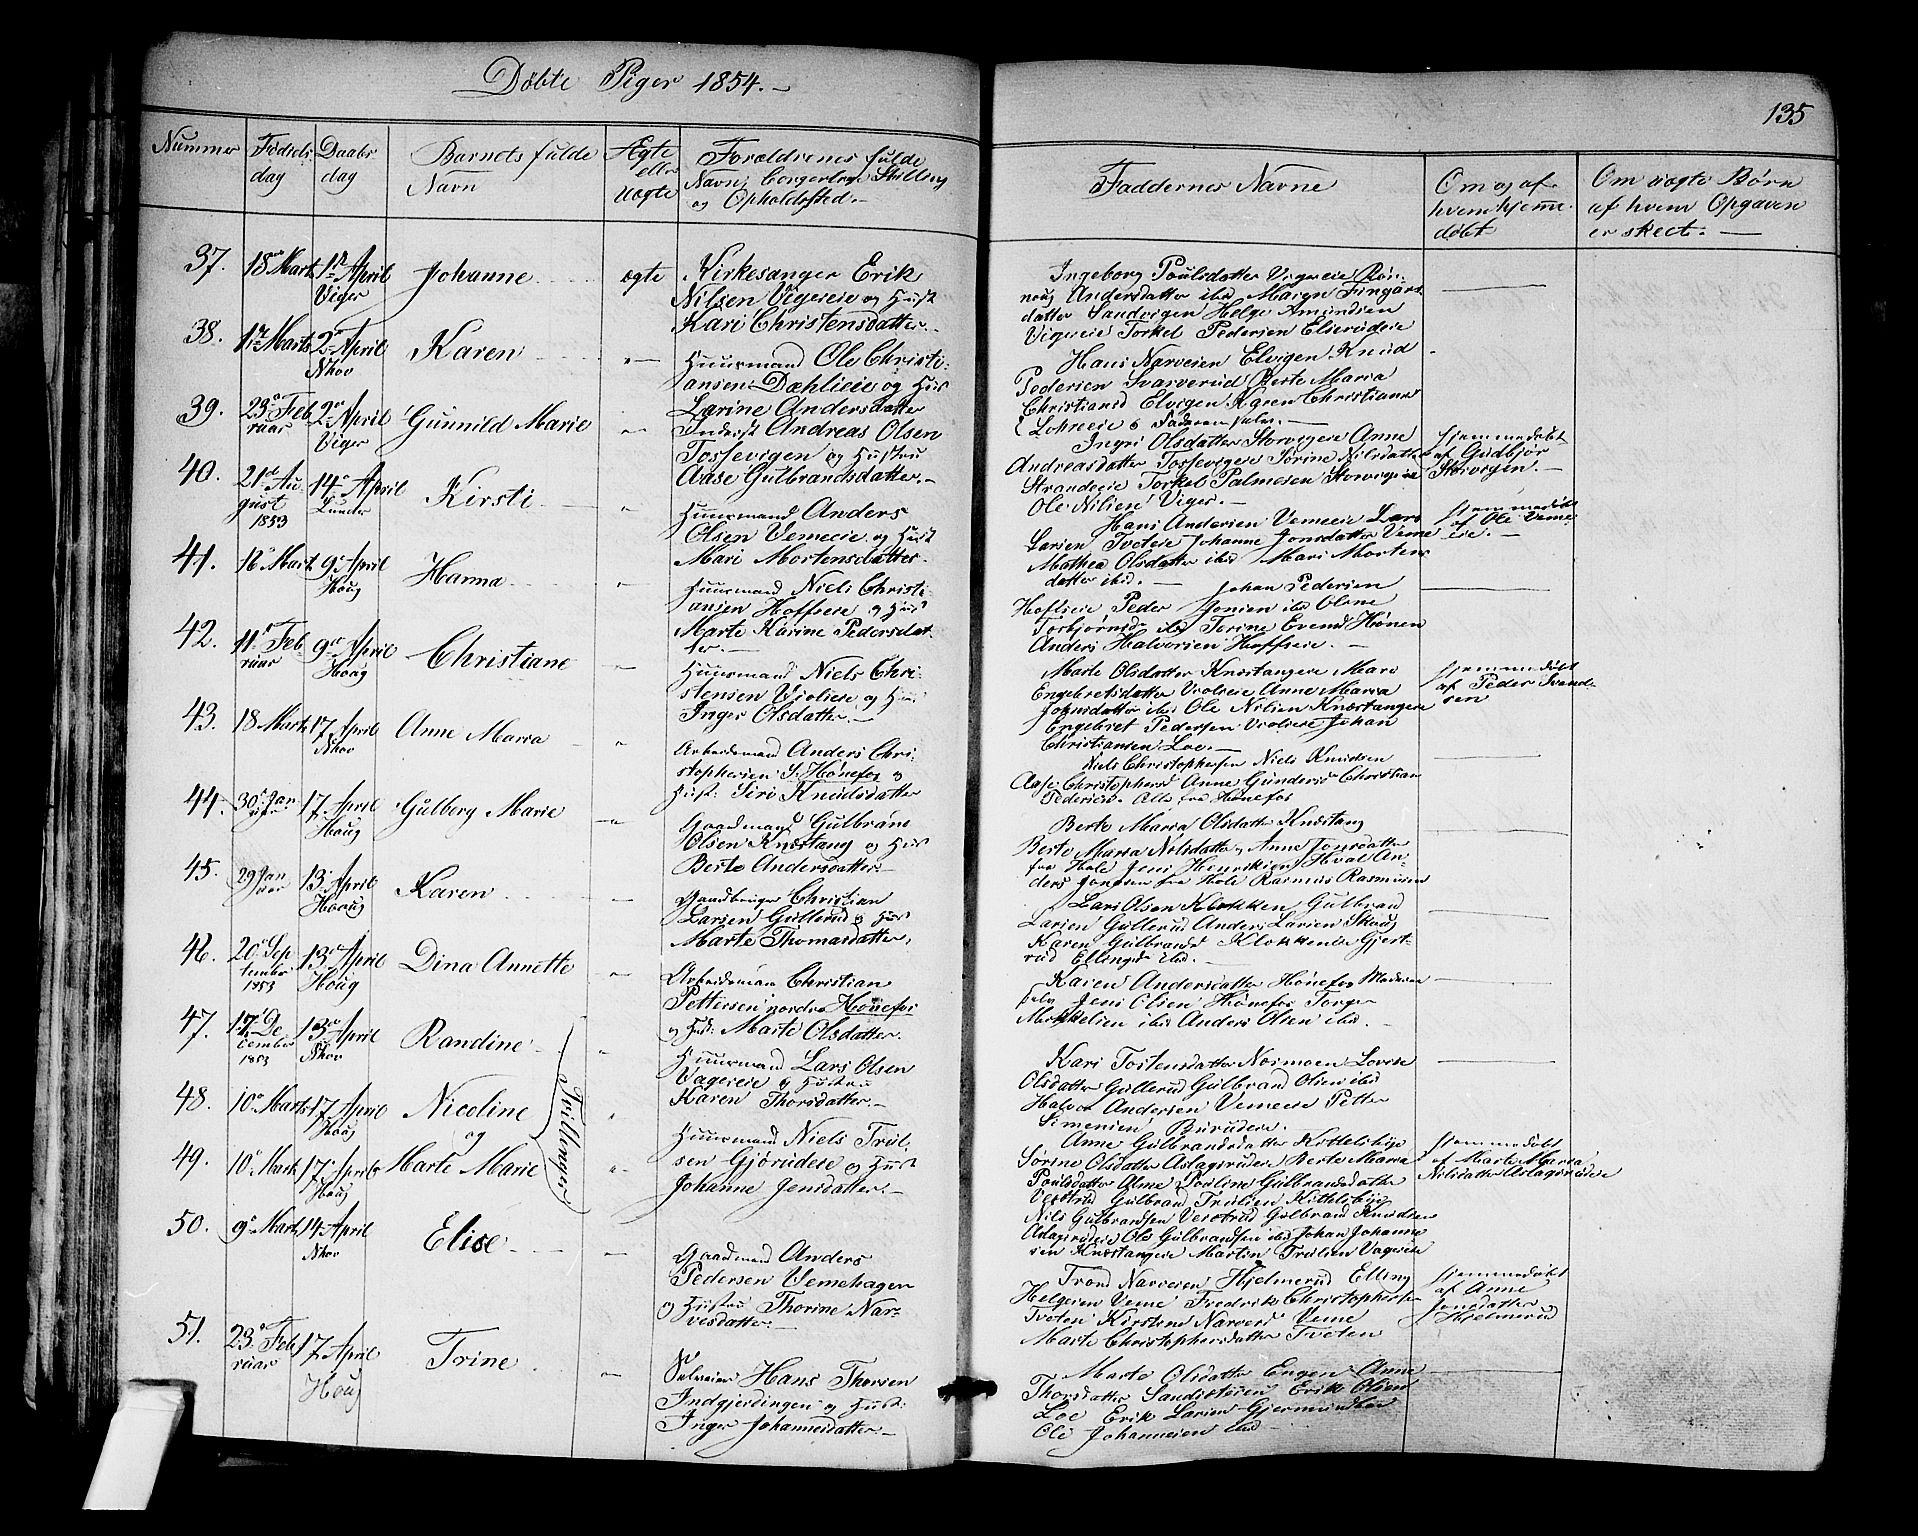 Döbte Piger 1854.
135
Nummer
Fødsels
dag
Daabs
dag
Barnets fulde
Navn
Ægte
eller
Uægte
Forældrenes fulde
Navn, borgerlige Stilling
og Opholdssted.
Faddernes Navne
Om og af
hvem hjemme
døbt
Om uægte Børn
af hvem Opgaven
er skeet.
37.
18 Mart
1 April
Viger
Johanne
ægte
Kirkesanger Erik
Nilsen Vigereie og Hust
Kari Christensdatter.
Ingeborg Poulsdatter Vigereie Røn-
noug Andersdatter ibid Maren Fingars
datter Sandvigen Helge Amundsen
Vigereie Torkel Pedersen Elserudeie
38.
1 Marts
2 April
Nhov
Karen
Huusmand Ole Christi-
ansen Dæhlieie og Hus
Larine Andersdatter
Hans Narvesen Elvigen Knud
Pedersen Svarverud Berte Maria
Christiansd Elvigen Karen Christians
Lohneeie & Faderen selv.
39.
23 Feb
ruar
2 April
Viger
Gunnild Marie
Inderst Andreas Olsen
Tossevigen og Hustru
Aase Gulbrandsdatter.
Ingri Olsdatter Storvigeie Anne
Andreasdatter Tossevigeie Sørine Nilsdatter
Strandeeie Torkel Palmesen Storvigeie
Ole Nilsen Viger.
Hjemmedøbt
af Gudbjør
Storvigen.
40.
21 Au-
gust
1853
14 April
Lunder
Kirsti
Huusmand Anders
Olsen Vemeeie og Hust
Mari Mortensdatter.
Hans Andersen Vemeeie Lars
Larsen Tveteie Johanne Jonsdatter Veme
Mathea Olsdatter ibid Mari Mortens
datter ibid.
Hjemmedøbt
af Ole Veme
eie.
41.
16 Mart
9 April
Houg
Hanna
Huusmand Niels Christi-
ansen Hoffseie og Hust
Marte Karine Pedersdat
ter.
Johan Pedersen
Hoffseie Peder Jonsen ibid Olme
Torbjørnsd ibid Torine Evensd Hønen
Anders Halvorsen Hoffseie.
42.
11 Feb
ruar
9 April
Houg
Christiane
Huusmand Niels Chri-
stensen Vroleie og Hust
Inger Olsdatter.
Marte Olsdatter Knæstangeie Mari
Engebretsdatter Vroleie Anne Maria
Johnsdatter ibid Ole Nilsen Knæstangeie
Engebret Pedersen Vroleie Johan
Christiansen Loe.
Hjemmedøbt
af Peder Svend-
sen
43.
18 Mart
17 April
Nhov
Anne Maria
Arbeidsmand Anders Chri-
stophersen S. Hønefos og
Hust: Siri Knudsdatter
Niels Christophersen Niels Knudsen
Aase Christophersd Anne Gundersd Christian
Pedersen. Alle fra Hønefos
44.
30 Jan
uar
17 April
Houg
Gulberg Marie
Gaardmand Gulbrand
Olsen Knæstang og Hust
Berte Andersdatter.
Berte Maria Olsdatter Knæstang
Berte Maria Nilsdatter, Anne Jonsdatter
fra Hole Jens Henriksen Hval An-
ders Jonsen fra Hole Rasmus Rasmusen
45.
29 Jan
uar
13 April
Houg
Karen
Gaardbruger Christian
Larsen Gullerud og Hust
Marte Thomasdatter,
Lars Olsen Klokken Gulbrand
Larsen Gullerud Anders Larsen Skoug
Karen Gulbrandsd Klokkeneie Gjert-
rud Ellingsd ibid.
46.
20 Sep
tember
1853
13 April
Houg
Dina Annette
Arbeidsman Christian
Pettersen nordre Hønefos
og Hust: Marte Olsdatter.
Karen Andersdatter Hønefos Moderen
selv Jens Olsen Hønefos Torger
Mikkelsen ibid Anders Olsen ibid.
47.
17 De
cember
1853
13 April
Nhov
Randine
Huusmand Lars Olsen
Vagereie og Hustru
Karen Thorsdatter.
Kari Tostensdatter Normoen Lovise
Olsdatter Gullerud Gulbrand Olsen ibid
Halvor Andersen Vemeeie Petter
Simensen Burudeie.
48.
10 Marts
17 April
Houg
Nicoline
og
Tvillinger
Huusmand Niels Trul-
sen Gjørudeie og Hust
Johanne Jensdatter.
Anne Gulbrandsdatter Kittelsbye
Sørine Olsdatter Aslagsrudeie Berte Maria
Poulsdatter Olme Pouline Gulbrandsdatter
Vestrud Gulbrand Trulsen Kittelsbye
49.
10 Mart
17 April
Houg
Marte Marie
Nils Gulbrandsen Vestrud Gulbrand Knudsen
Aslagsrudeie Ole Gulbrandsen ibid Johan Johanne
sen Knæstangeie Martin Trulsen Vagereie
Hjemmedøbt
af Marte Maria
Nilsdatter Aslagsrudeie
50.
9 Mart
14 April
Nhov
Elise
Gaardmand Anders
Pedersen Vemehagen
og Hustru Thorine Nar-
vesdatter.
Trond Narvesen Hjelmerud Elling
Helgesen Veme Fredrik Christophersen
Tveten Kirstine Narvesd Veme
Marte Christophersdatter Tveten
Hjemmedøbt
af Anne
Jonsdatter
Hjelmerud
51.
23 Feb
ruar
17 April
Houg
Trine
Selveier Hans Thorsen
Indgjerdingen og Hust:
Inger Johannesdatter.
Marte Olsdatter Engen Anne
Thorsdatter Sandstøen Erik Olsen
Loe Erik Larsen Gjermundbo
Ole Johannesen ibid.